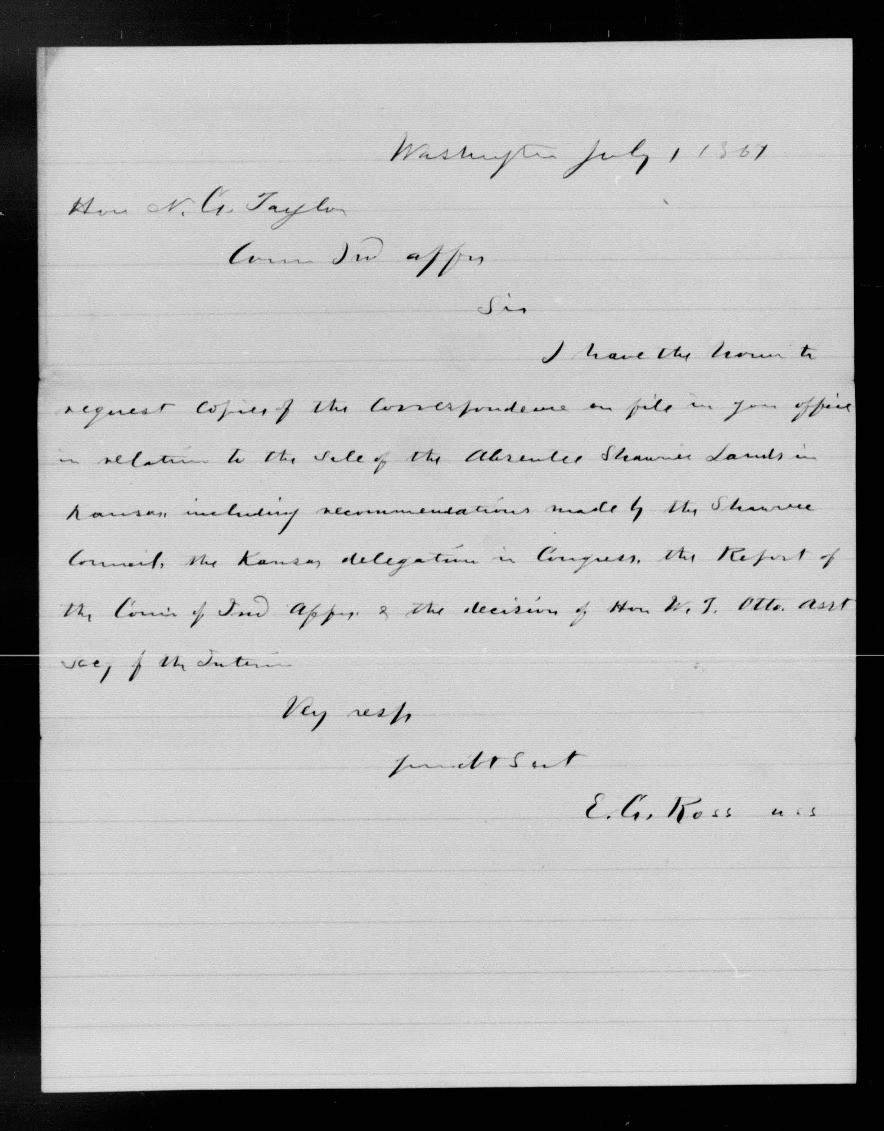 Washington July 1 1867
Hon N. G. Taylor
Comr Ind affrs
Sir
I have the honor to
request copies of the Correspondence on file in your office
in relation to the sale of the Absentee Shawnee Lands in
Kansas including recommendations made by the Shawnee
Council, the Kansas delegation in Congress, the Report of
the Comr of Ind Affrs. & the decision of Hon W. T. Otto. Asst
Secy of the Interior
Vey resp
Your obt Svt
E. G. Ross uss